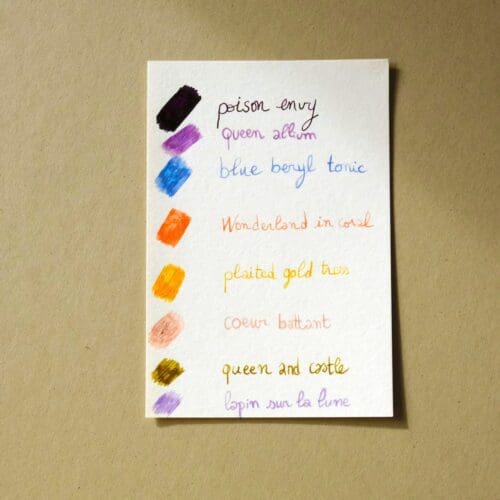 poison envy
queen allium
blue beryl tonic
Wonderland in coral
plaited gold tress
coeur battant
queen and castle
lapin sur la lune